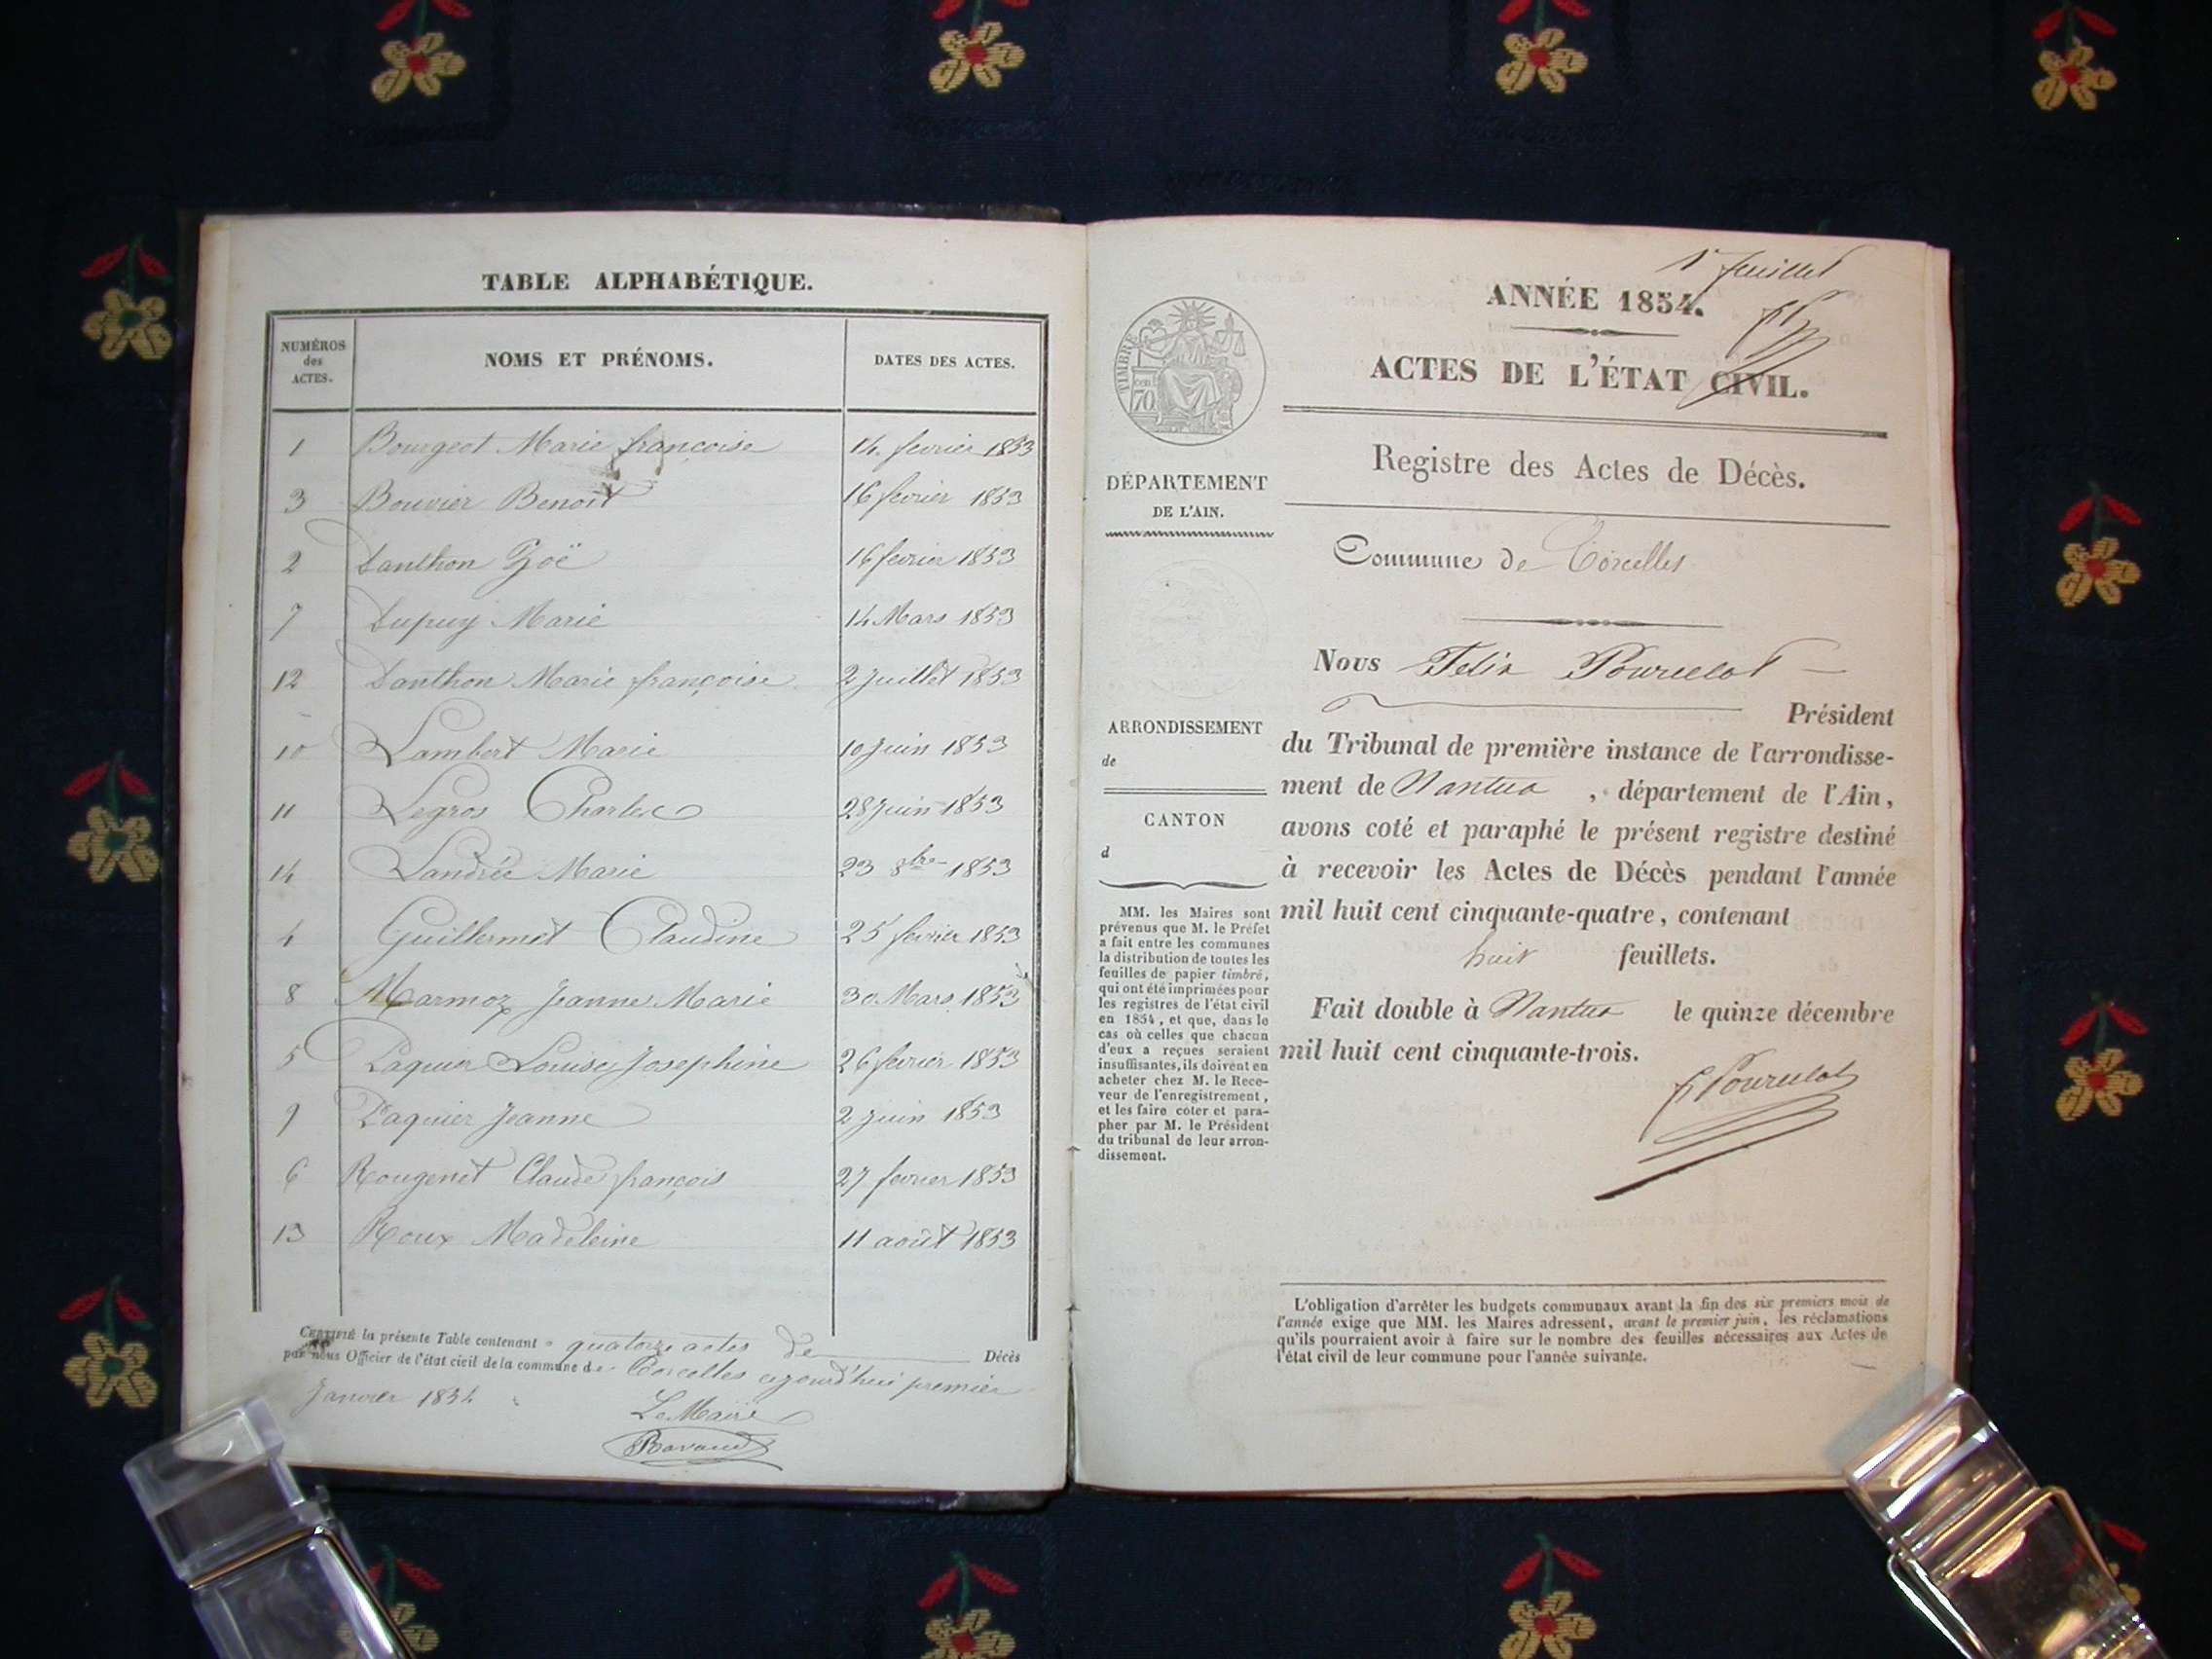 TABLE ALPHABÉTIQUE.
NUMÉROS des ACTES. NOMS ET PRÉNOMS. DATES DES ACTES.
1 Bourgeot Marie françoise 14 fevrier 1853
3 Bouvier Benoit 16 fevrier 1853
2 Danthon Zoë 16 fevrier 1853
7 Dupuy Marie 14 Mars 1853
12 Danthon Marie françoise 2 Juillet 1853
10 Lambert Marie 10 Juin 1853
11 Legros Charles 28 Juin 1853
14 Landrée Marie 23 8bre 1853
4 Guillermet Claudine 25 fevrier 1853
8 Marmoz Jeanne Marie 30 Mars 1853
5 Paquier Louise Josephine 26 fevrier 1853
9 Paquier Jeanne 2 Juin 1853
6 Rougemt Claude françois 27 fevrier 1853
13 Roux Madeleine 11 août 1853
CERTIFIÉ la présente Table contenant quatorze actes De Décès
par nous Officier de l'état civil de la commune de Corcelles ajourd'hui premier
Janvier 1854
Le Maire
Ravaud
1r feuillet
ANNÉE 1854.
ACTES DE L'ÉTAT CIVIL.
TIMBRE
70 cen
Registre des Actes de Décès.
DÉPARTEMENT
DE L'AIN.
Commune de Corcelles
Nous Felix Pourcelot
Président
ARRONDISSEMENT
de
du Tribunal de première instance de l'arrondisse-
ment de Nantua , département de l'Ain,
CANTON
d
avons coté et paraphé le présent registre destiné
à recevoir les Actes de Décès pendant l'année
mil huit cent cinquante-quatre, contenant
huit feuillets.
Fait double à Nantua le quinze décembre
mil huit cent cinquante-trois.
F Pourcelot
MM. les Maires sont
prévenus que M. le Préfet
a fait entre les communes
la distribution de toutes les
feuilles de papier timbré,
qui ont été imprimées pour
les registres de l'état civil
en 1854, et que, dans le
cas où celles que chacun
d'eux a reçues seraient
insuffisantes, ils doivent en
acheter chez M. le Rece-
veur de l'enregistrement,
et les faire coter et para-
pher par M. le Président
du tribunal de leur arron-
dissement.
L'obligation d'arrêter les budgets communaux avant la fin des six premiers mois de
l'année exige que MM. les Maires adressent, avant le premier juin, les réclamations
qu'ils pourraient avoir à faire sur le nombre des feuilles nécessaires aux Actes de
l'état civil de leur commune pour l'année suivante.